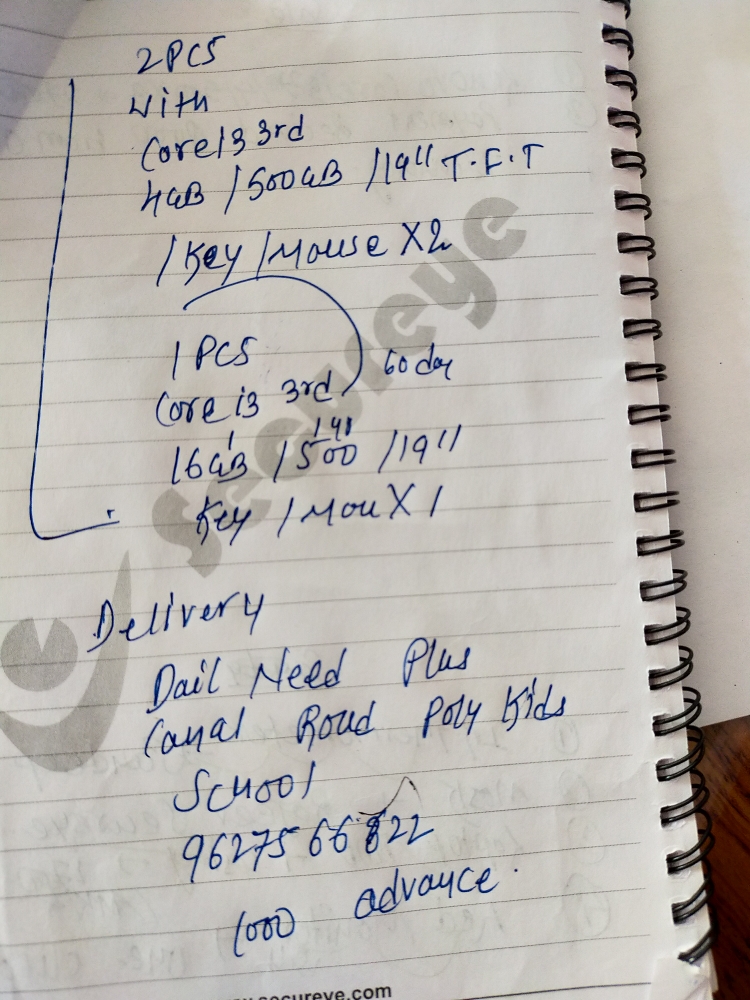 2 PCS
with
Core i3 3rd
4GB / 500GB / 19" T.F.T
/ Key / Mouse X2
1 PCS
60 day
Core i3 3rd
16GB / 500 / 19"
Key / Mou X 1
Delivery
Dail Need Plus
Canal Road Poly Kids
School
96275 66822
1000 advance.
Secureye
secureye.com